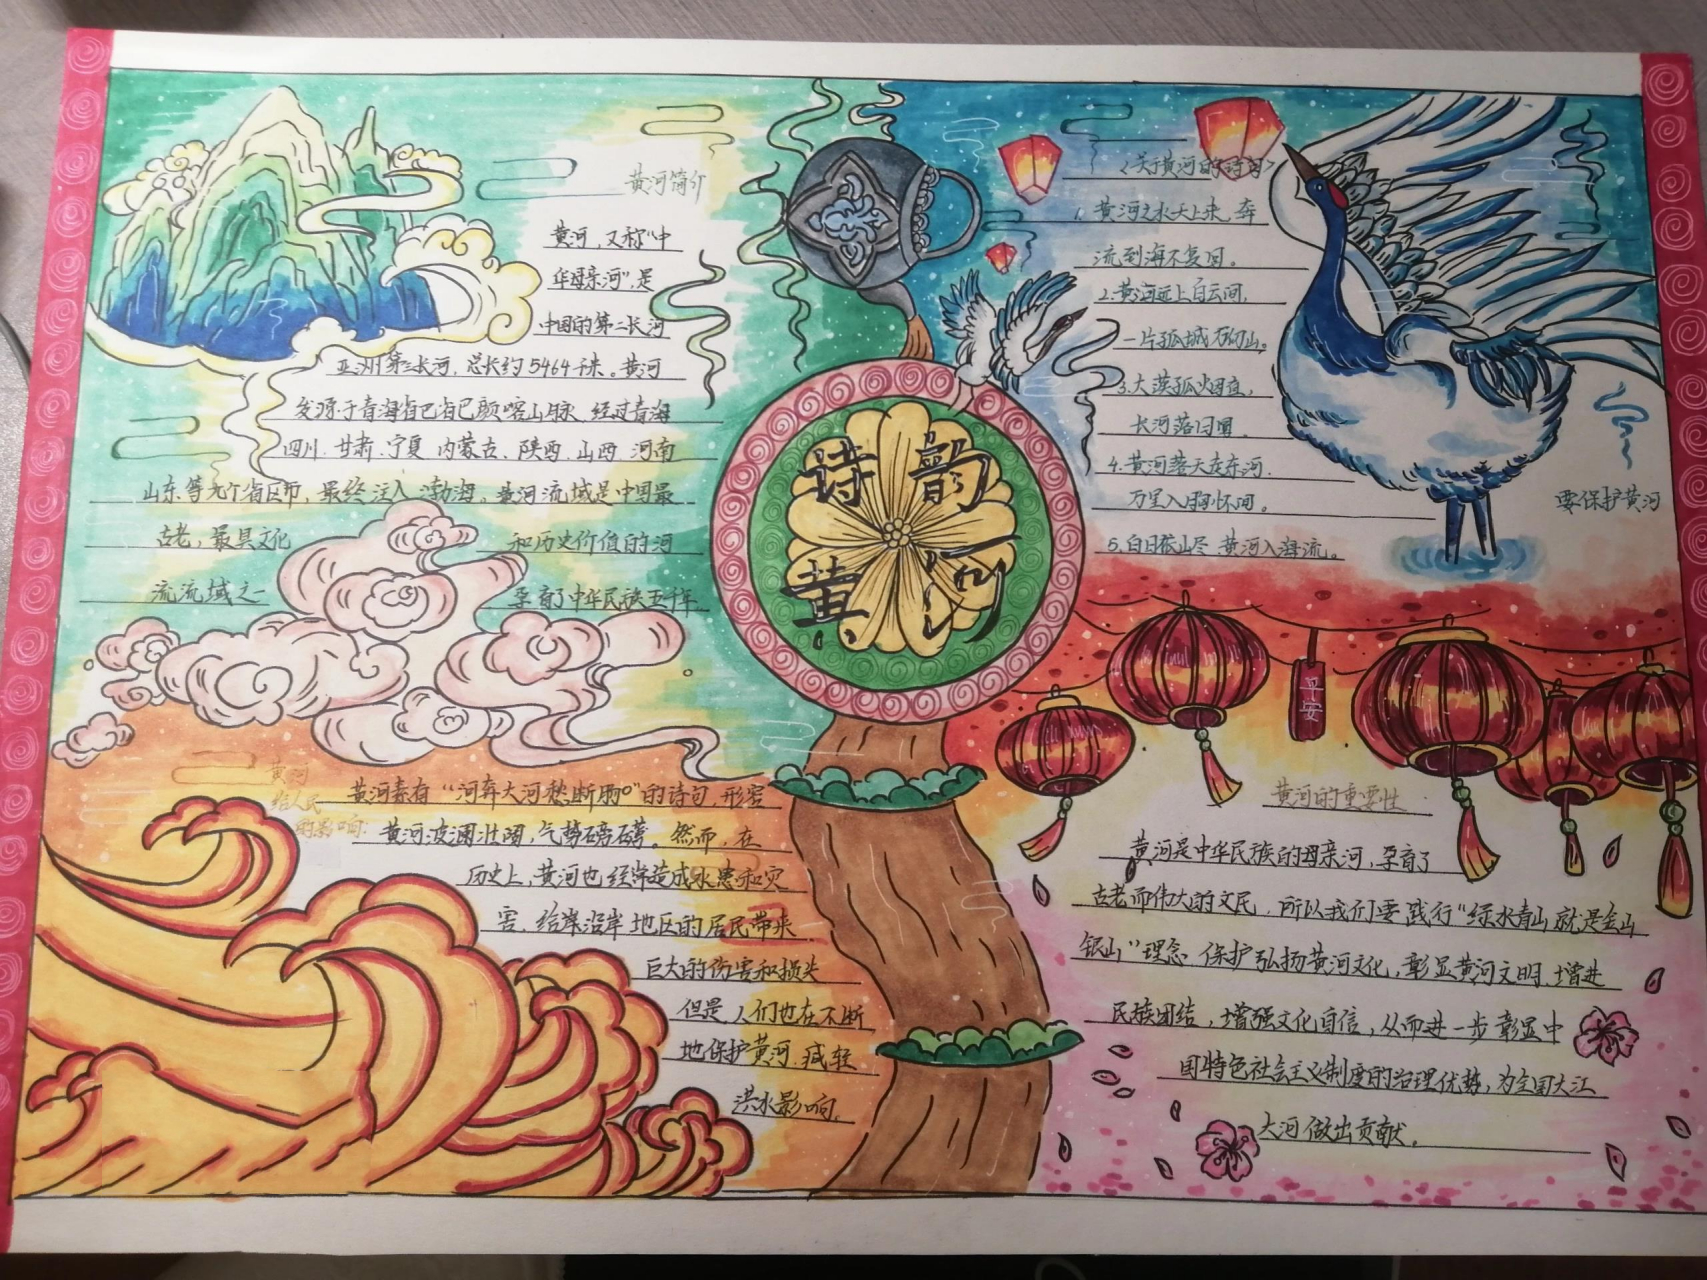 黄河简介
黄河，又称“中
华母亲河”，是
中国的第二长河
亚洲第三长河，总长约5464千米。黄河
发源于青海省巴省巴颜喀山脉、经过青海
四川、甘肃、宁夏、内蒙古、陕西、山西、河南
山东等九个省区市，最终注入渤海，黄河流域是中国最
古老，最具文化 和历史价值的河
流流域之一 孕育了中华民族五千年
诗韵
黄河
《关于黄河的诗词》
1.黄河之水天上来，奔
流到海不复回。
2.黄河远上白云间，
一片孤城万仞山。
3.大漠孤烟直，
长河落日圆。
4.黄河落天走东河，
万里入胸怀间。
5.白日依山尽 黄河入海流。
要保护黄河
黄河
给人民
的影响:
黄河素有“河奔大河愁断肠。”的诗句，形容
黄河波澜壮阔，气势磅礴。然而，在
历史上，黄河也经常造成水患和灾
害，给岸沿岸地区的居民带来
巨大的伤害和损失
但是人们也在不断
地保护黄河，减轻
洪水影响。
平安
黄河的重要性
黄河是中华民族的母亲河，孕育了
古老而伟大的文民，所以我们要践行“绿水青山就是金山
银山”理念 保护弘扬黄河文化，彰显黄河文明，增进
民族团结，增强文化自信，从而进一步彰显中
国特色社会主义制度的治理优势，为全国大江
大河做出贡献。